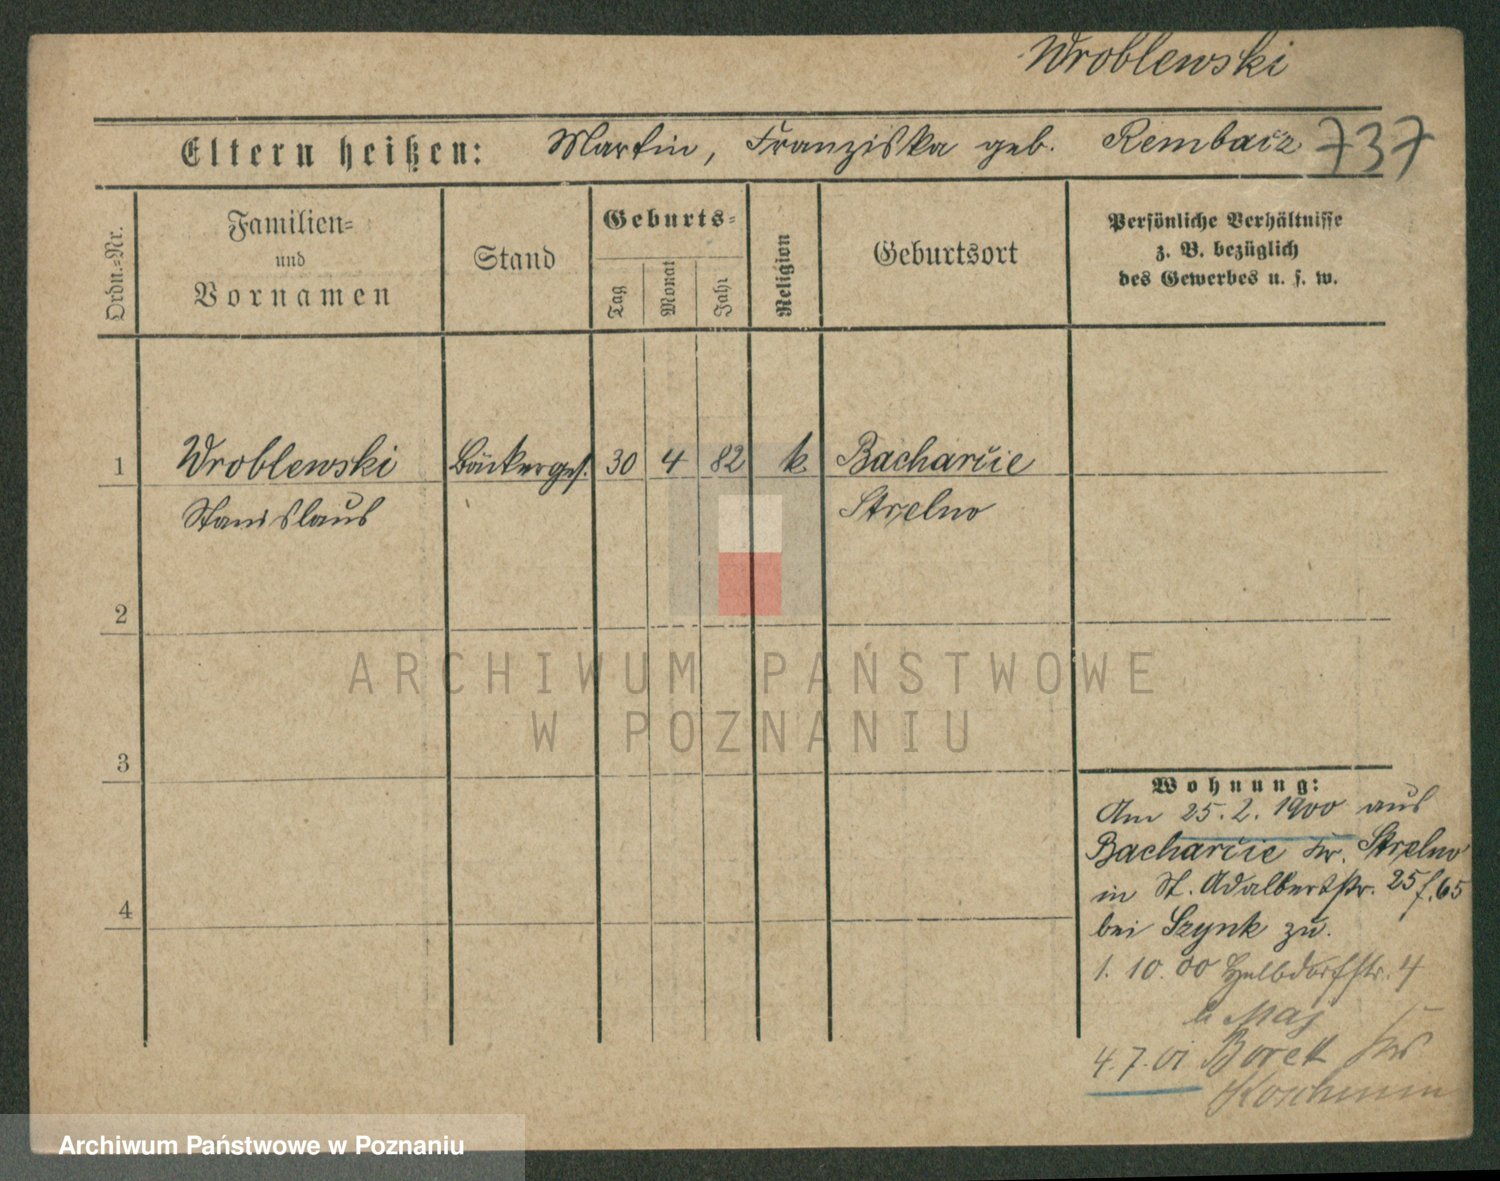 Wroblewski
Eltern heißen: Martin, Franziska geb. Rembacz 737
Ordn.=Nr.
Familien=
und
Vornamen
Stand
Geburts=
Tag
Monat
Jahr
Religion
Geburtsort
Persönliche Verhältnisse
z. B. bezüglich
des Gewerbes u. s. w.
1 Wroblewski Bäckerges. 30 4 82 k. Bacharcie
Stanislaus Strelno
2
ARCHIWUM PAŃSTWOWE
W POZNANIU
3
Wohnung:
Am 25. 2. 1900 aus
Bacharcie Kr. Strelno
in St. Adalbertstr. 25/65
4
bei Szynk zu.
1. 10. 00 Halbdorfstr. 4
b Maj
4. 7. 01 Borek Krs
Koschmin
Archiwum Państwowe w Poznaniu